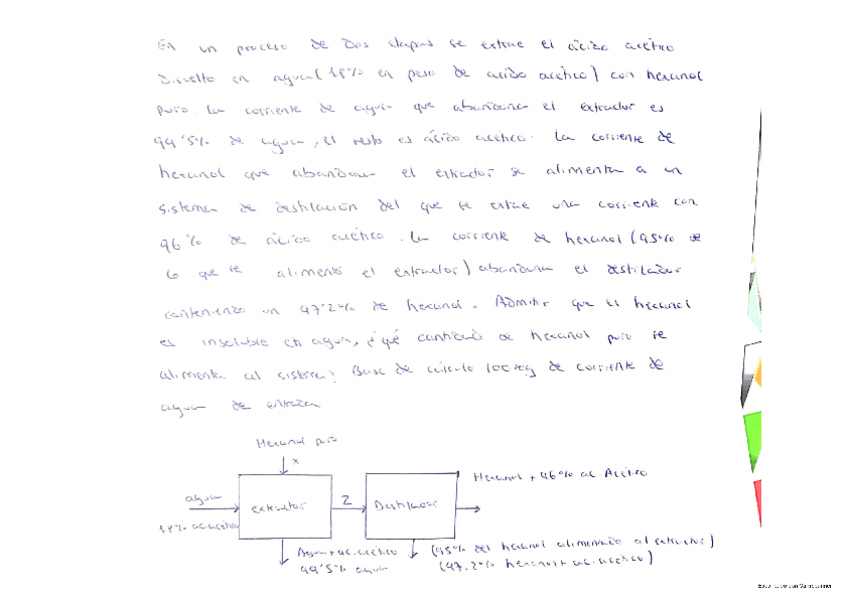 En un proceso de dos etapas se extrae el ácido acético
disuelto en agua (18% en peso de acido acético) con hexanol
puro. La corriente de agua que abandona el extractor es
99'5% de agua, el resto es ácido acético. La corriente de
hexanol que abandona el extractor se alimenta a un
sistema de destilación del que se extrae una corriente con
96% de ácido acético. La corriente de hexanol (95% de
lo que se alimentó el extractor) abandona el destilador
conteniendo un 97'2% de hexanol. Admitir que el hexanol
es insoluble en agua, ¿qué cantidad de hexanol puro se
alimenta al sistema? Base de cálculo 100 kg de corriente de
agua de entrada
Hexanol puro
x
agua
18% ac. acético
extractor
2
Destilador
Hexanol + 96% ac. Acético
Agua + ac. acético
99'5% agua
(95% del hexanol alimentado al extractor)
(97.2% hexanol + ac. acético)